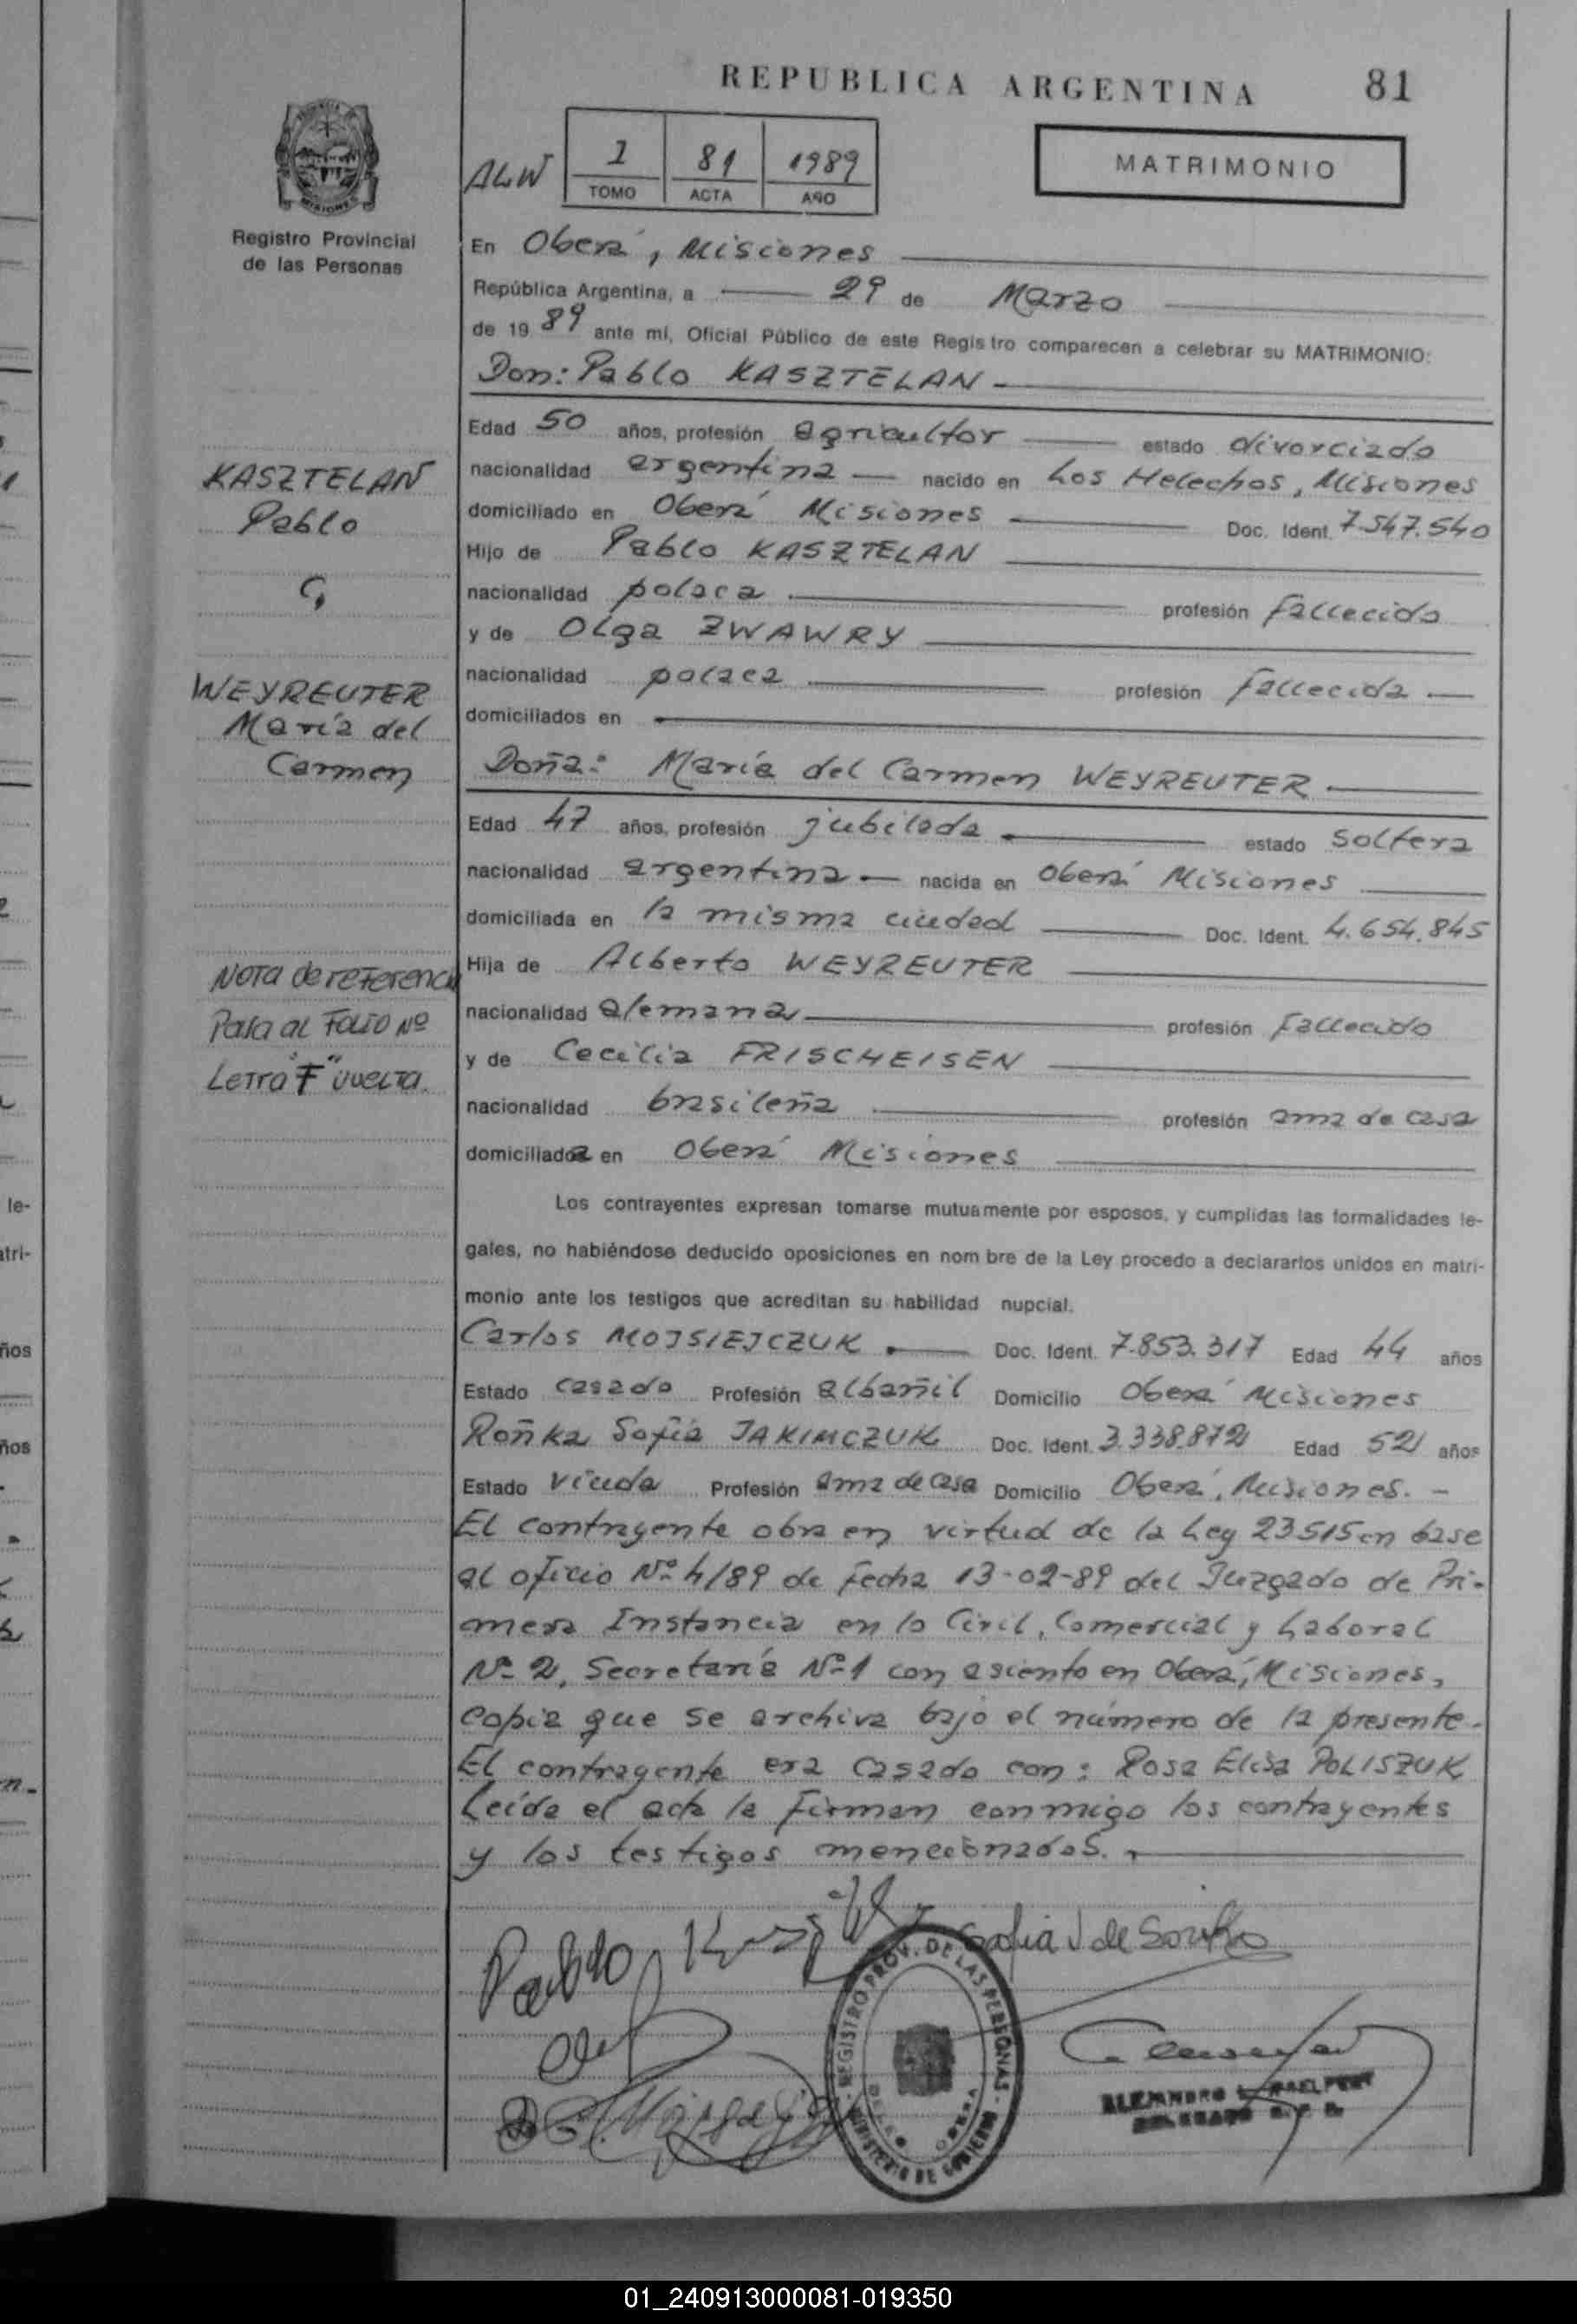 REPUBLICA ARGENTINA 81
MATRIMONIO
ALW 1 81 1989
TOMO ACTA AÑO
Registro Provincial
de las Personas
En Oberá, Misiones
República Argentina, a 29 de Marzo
de 19 89 ante mi, Oficial Público de este Registro comparecen a celebrar su MATRIMONIO:
Don: Pablo KASZTELAN
Edad 50 años, profesión agricultor estado divorciado
nacionalidad argentina nacido en Los Helechos, Misiones
domiciliado en Oberá Misiones Doc. Ident. 7.547.540
Hijo de Pablo KASZTELAN
nacionalidad polaca profesión fallecido
y de Olga ZWAWRY
nacionalidad polaca profesión fallecida
domiciliados en
Doña: María del Carmen WEYREUTER
Edad 47 años, profesión jubilada estado soltera
nacionalidad argentina nacida en Oberá Misiones
domiciliada en la misma ciudad Doc. Ident. 4.654.845
Hija de Alberto WEYREUTER
nacionalidad alemana profesión fallecido
y de Cecilia FRISCHEISEN
nacionalidad brasileña profesión ama de casa
domiciliada en Oberá Misiones
KASZTELAN
Pablo
c,
WEYREUTER
María del
Carmen
Nota de referencia
Pasa al Folio Nº
Letra "F" vuelta.
Los contrayentes expresan tomarse mutuamente por esposos, y cumplidas las formalidades le-
gales, no habiéndose deducido oposiciones en nom bre de la Ley procedo a declararlos unidos en matri-
monio ante los testigos que acreditan su habilidad nupcial.
Carlos MOJSIEJCZUK Doc. Ident. 7.853.317 Edad 44 años
Estado casado Profesión albañil Domicilio Oberá Misiones
Roñka Sofía JAKIMCZUK Doc. Ident. 3.338.872 Edad 52 años
Estado viuda Profesión ama de casa Domicilio Oberá, Misiones. -
El contrayente obra en virtud de la Ley 23515 en base
al oficio Nº 4/89 de fecha 13-02-89 del Juzgado de Pri-
mera Instancia en lo Civil, Comercial y Laboral
Nº 2, Secretaría Nº 1 con asiento en Oberá, Misiones,
copia que se archiva bajo el número de la presente.
El contrayente era casado con: Rosa Elisa POLISZUK
Leída el acta la firman conmigo los contrayentes
y los testigos mencionados.
Pablo
Sofia J de
REGISTRO PROV. DE LAS PERSONAS
MINISTERIO DE GOBIERNO
ALEJANDRO
DELEGADO
01_240913000081-019350
le-
atri-
ños
ños
n.